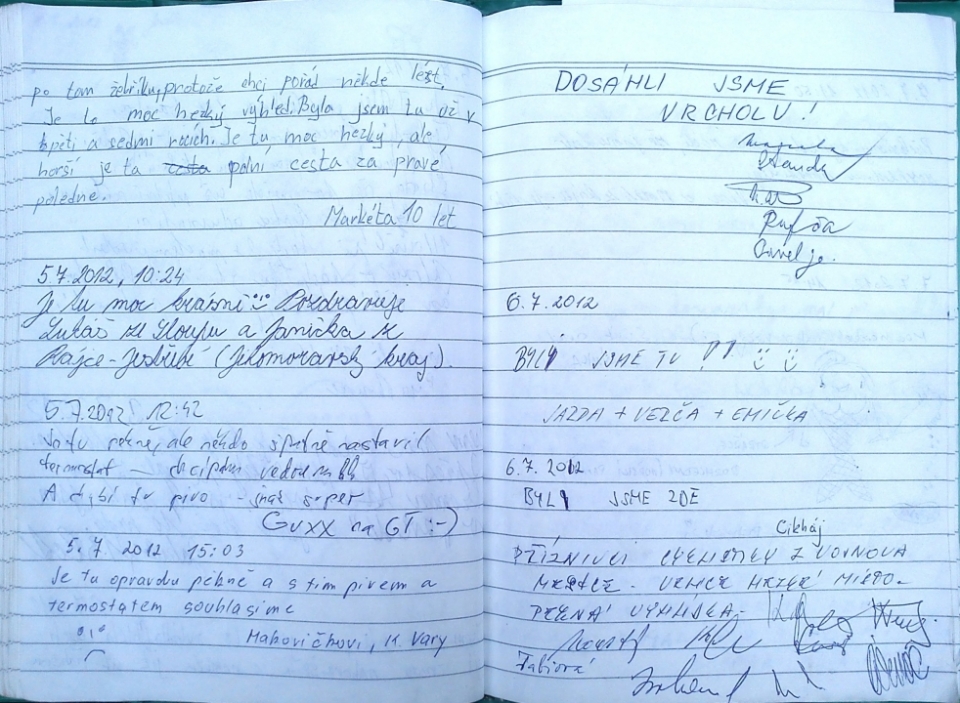 po tom žebříku, protože chci pořád někde lézt.
Je to moc hezký výhled. Byla jsem tu už v
pěti a sedmi rocích. Je tu moc hezky, ale
horší je ta cesta polní cesta za pravé
poledne.
Markéta 10 let
5.7.2012, 10:24
Je tu moc krásně Pozdravuje
Lukáš ze Sloupu a Janička z
Rájce-Jestřebí (Jihomoravský kraj).
5.7.2012! 12:42
Je tu pěkně, ale někdo špatně nastavil
termostat – chcípám vedrem
A chybí tu pivo – jinak super
Guxx na GT :-)
5. 7 2012 15:03
Je tu opravdu pěkně a s tím pivem a
termostatem souhlasíme
Mahovičkovi, K. Vary
DOSÁHLI JSME
VRCHOLU!
Standa
Pavel je.
6.7.2012
BYLI JSME TU !!
JAZDA + VERČA + EMIČKA
6.7. 2012
BYLI JSME ZDE
Cikháj
PŘÍZNIVCI CHEMIČKY Z VOJNOVA
MĚSTCE. VELICE HEZKÉ MÍSTO.
PĚKNÁ VYHLÍDKA.
Fabiová